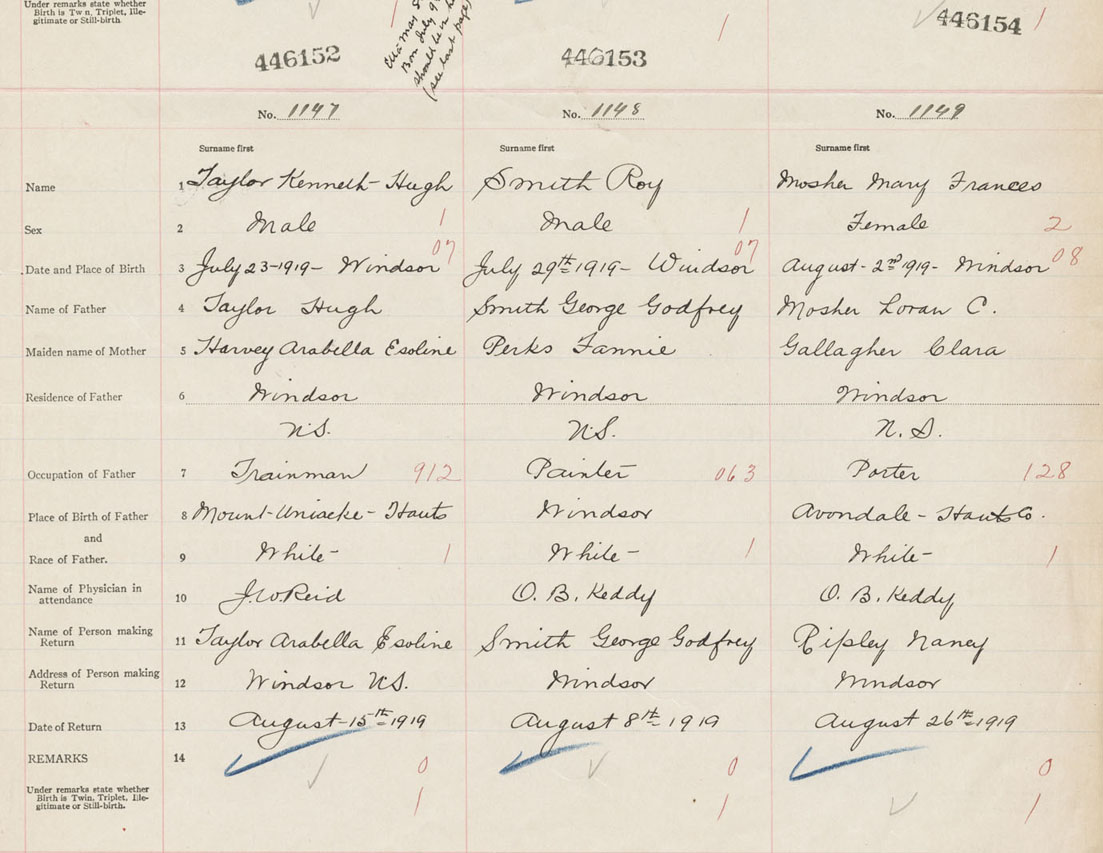 Under remarks state whether
Birth is Twin, Triplet, Ille-
gitimate or Still-birth.
1
1
1
446154
446152
446153
Ella May
Born July 9
should be in
(see last page)
No. 1147
No. 1148
No. 1149
Surname first
Surname first
Surname first
Name 1 Taylor Kenneth Hugh Smith Roy Mosher Mary Frances
Sex 2 Male 1 Male 1 Female 2
07 07 08
Date and Place of Birth 3 July 23-1919- Windsor July 29th 1919- Windsor August-2nd 1919- Windsor
Name of Father 4 Taylor Hugh Smith George Godfrey Mosher Loran C.
Maiden name of Mother 5 Harvey Arabella Esoline Perks Fannie Gallagher Clara
Residence of Father 6 Windsor Windsor Windsor
N.S. N.S. N.S.
Occupation of Father 7 Trainman 912 Painter 063 Porter 128
Place of Birth of Father 8 Mount-Uniacke-Hants Windsor Avondale-Hants Co.
and
Race of Father. 9 White- 1 White- 1 White- 1
Name of Physician in
attendance 10 J.W.Reid O. B. Keddy O. B. Keddy
Name of Person making
Return 11 Taylor Arabella Esoline Smith George Godfrey Ripley Nancy
Address of Person making
Return 12 Windsor N.S. Windsor Windsor
Date of Return 13 August-15th-1919 August 8th 1919 August 26th-1919
REMARKS 14 0 0 0
Under remarks state whether
Birth is Twin, Triplet, Ille-
gitimate or Still-birth.
1 1 1